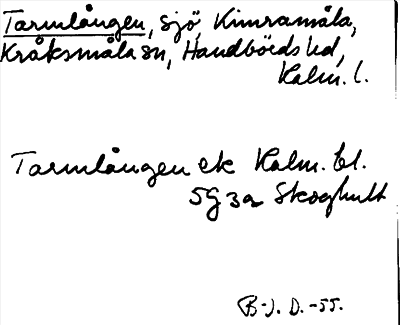 Tarmlången, sjö, Kimramåla,
Kråksmåla sn, Handbörds hd,
Kalm. l.
Tarmlången ek Kalm. bl.
5G 3a Skoghult
B-J. D. -55.